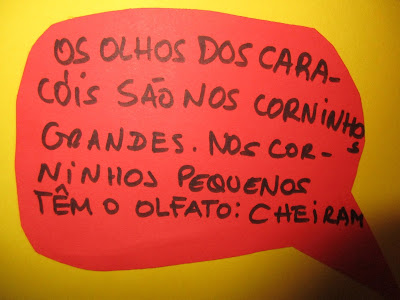 OS OLHOS DOS CARA-
CÓIS SÃO NOS CORNINHOS
GRANDES. NOS COR-
NINHOS PEQUENOS
TÊM O OLFATO: CHEIRAM